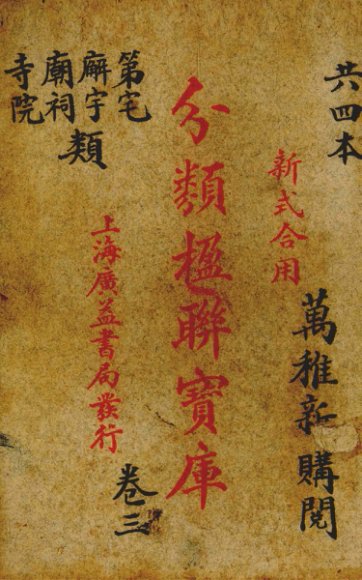 共四本
新式合用
萬稚新購閱
分類楹聯寶庫
上海廣益書局發行
卷三
第宅
廨宇
廟祠
寺院
類